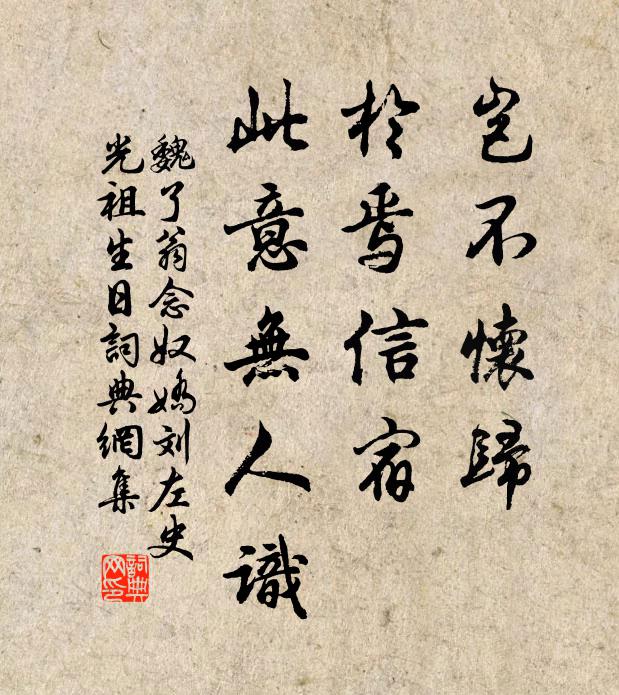 豈不懷歸
於焉信宿
此意無人識
魏了翁念奴嬌刘左史
光祖生日詞典網集
詞典
网印